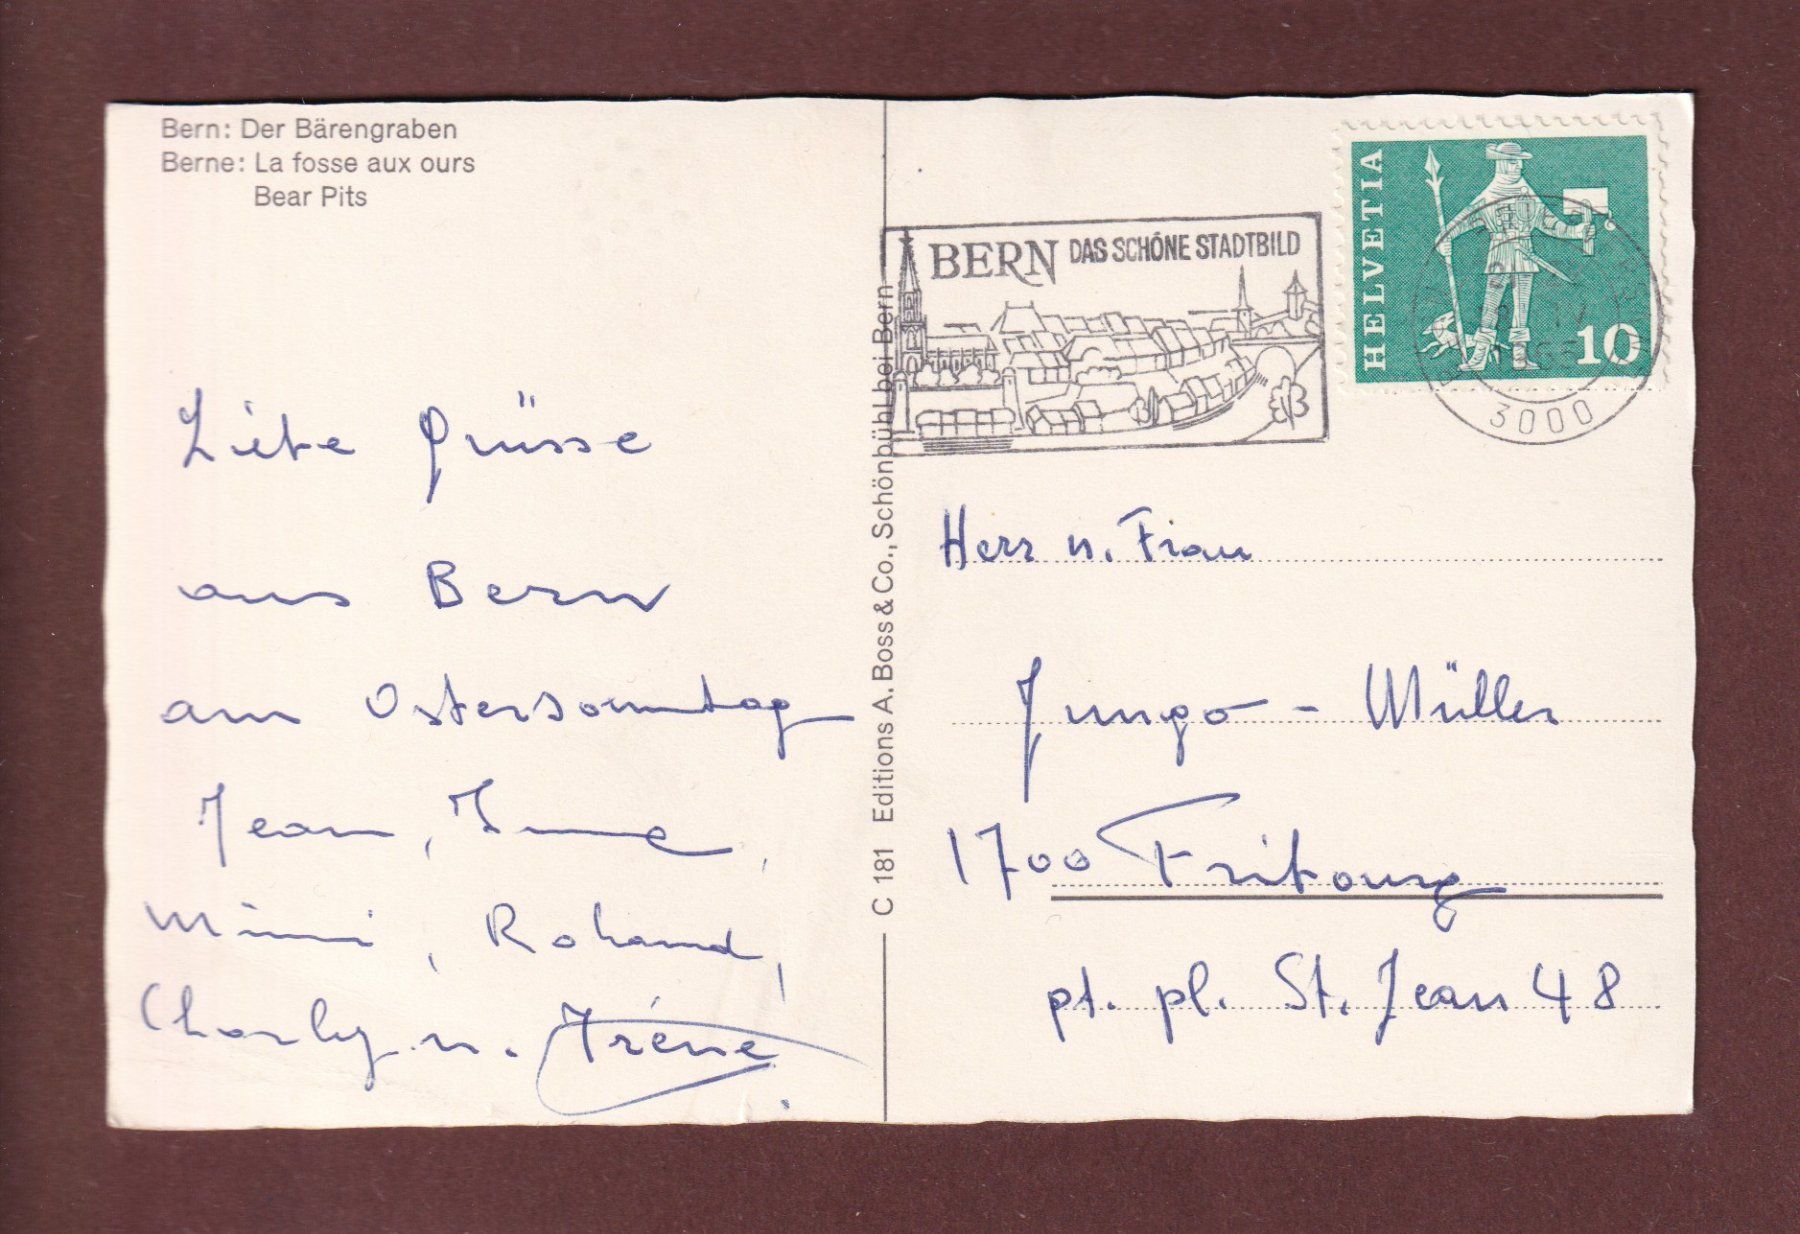 Bern: Der Bärengraben
Berne: La fosse aux ours
Bear Pits
Liebe Grüsse
aus Bern
am Ostersonntag
Jean,
Mimi, Roland,
Charly u. Irène
C 181 Editions A. Boss & Co., Schönbühl bei Bern
BERN DAS SCHÖNE STADTBILD
HELVETIA
10
3000
Herr u. Frau
Jungo - Müller
1700 Fribourg
pt. pl. St. Jean 48